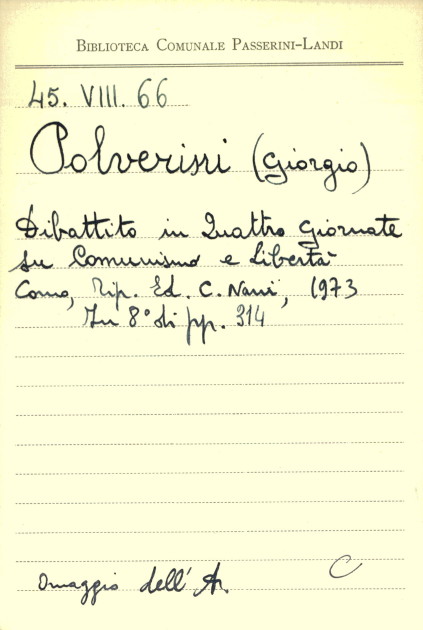 BIBLIOTECA COMUNALE PASSERINI-LANDI
45. VIII. 66
Polverini (Giorgio)
Dibattito in Quattro Giornate
su Comunismo e Libertà
Como, Tip. Ed. C. Nani, 1973
In 8° di pp. 314
Omaggio dell' A.
C